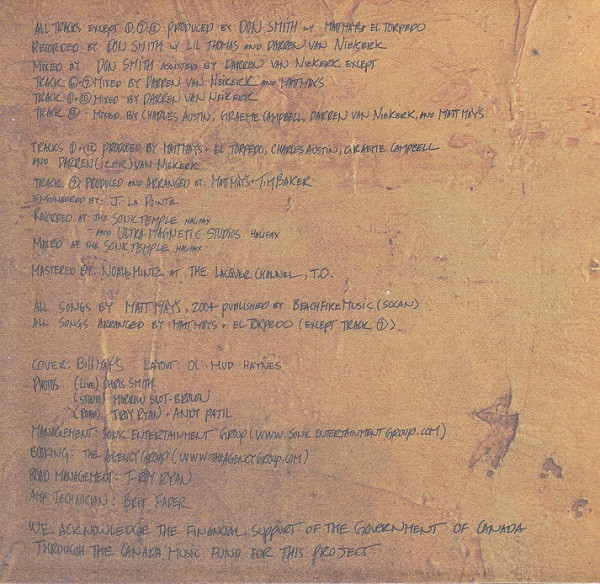 ALL TRACKS EXCEPT PRODUCED BY DON SMITH w/ MATT MAYS & EL TORPEDO
RECORDED BY DON SMITH w/ LIL THOMAS AND DARREN VAN NIEKERK
MIXED BY DON SMITH ASSISTED BY DARREN VAN NIEKERK EXCEPT
TRACK MIXED BY DARREN VAN NEIKERK AND MATT MAYS
TRACK MIXED BY DARREN VAN NEIKERK
TRACK - MIXED BY CHARLES AUSTIN, GRAEME CAMPBELL, DARREN VAN NIEKERK, AND MATT MAYS
TRACKS PRODUCED BY MATT MAYS + EL TORPEDO, CHARLES AUSTIN, GRAEME CAMPBELL
AND DARREN (IZER) VAN NIEKERK
TRACK PRODUCED AND ARRANGED BY: MATT MAYS + TIM BAKER
ENGINEERED BY: J. LA POINTE
RECORDED AT: THE SONIC TEMPLE HALIFAX
- AND ULTRA MAGNETIC STUDIOS HALIFAX
MIXED AT THE SONIC TEMPLE HALIFAX
MASTERED BY: NOAH MINTZ AT THE LACQUER CHANNEL, T.O.
ALL SONGS BY MATT MAYS, 2004 PUBLISHED BY BEACHFIRE MUSIC (SOCAN)
ALL SONGS ARRANGED BY MATT MAYS + EL TORPEDO (EXCEPT TRACK 7)
COVER: BILL MAYS LAYOUT: OL' MUD HAYNES
PHOTOS: (LIVE) CHRIS SMITH
(STUDIO) MORROW SCOT-BROWN
(ROAD) T-ROY RYAN + ANDY PATIL
MANAGEMENT: SONIC ENTERTAINMENT GROUP (WWW.SONICENTERTAINMENTGROUP.COM)
BOOKING: THE AGENCY GROUP (WWW.THEAGENCYGROUP.COM)
ROAD MANAGEMENT: T-ROY RYAN
AMP TECHNICIAN: BRIT FADER
WE ACKNOWLEDGE THE FINANCIAL SUPPORT OF THE GOVERNMENT OF CANADA
THROUGH THE CANADA MUSIC FUND FOR THIS PROJECT.